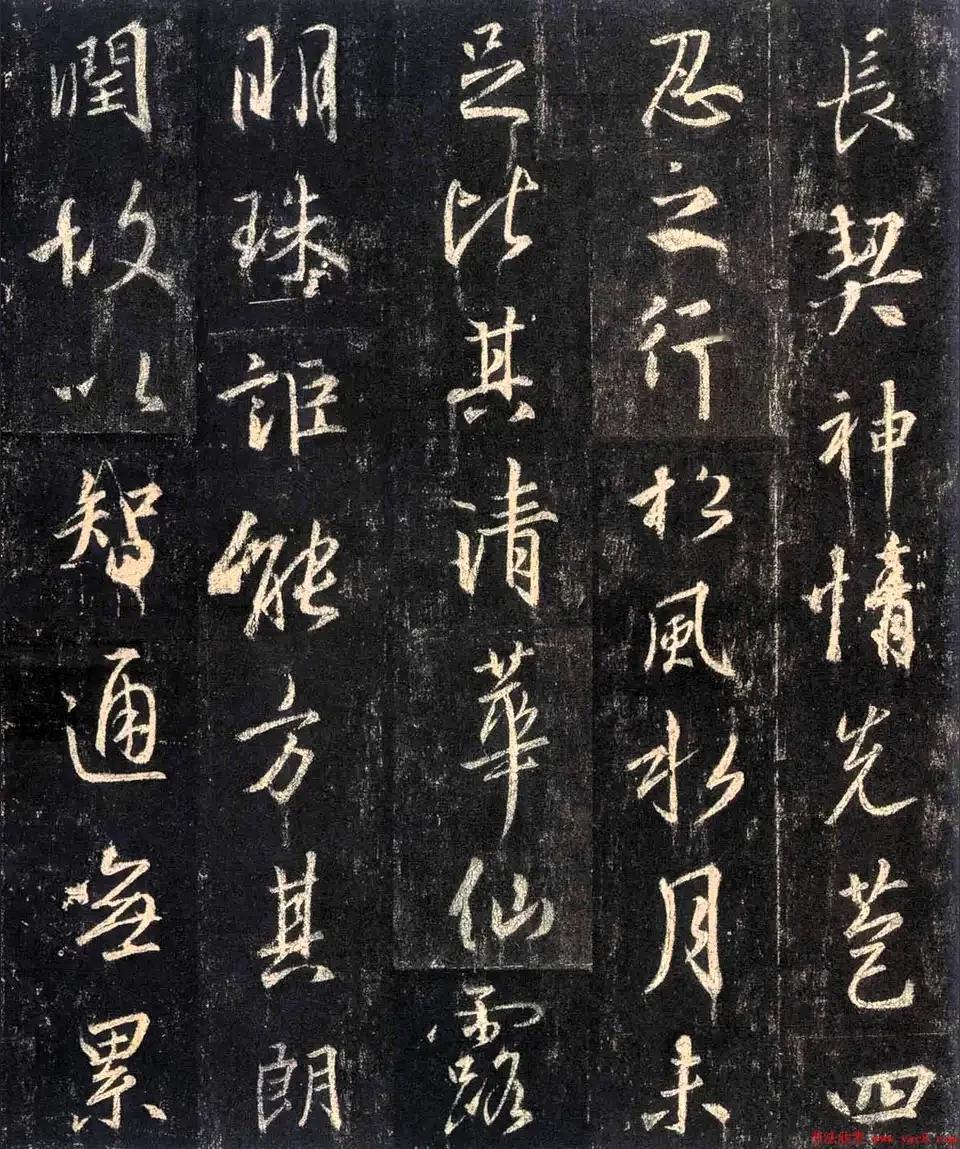 長契神情先苞四
忍之行松風水月未
足比其清華仙露
明珠詎能方其朗
潤故以智通無累
书法欣赏 www.yac8.com